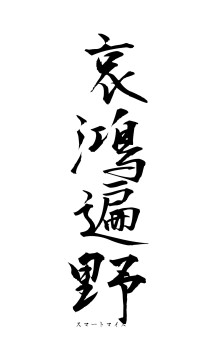 哀鴻遍野
スマートマイズ